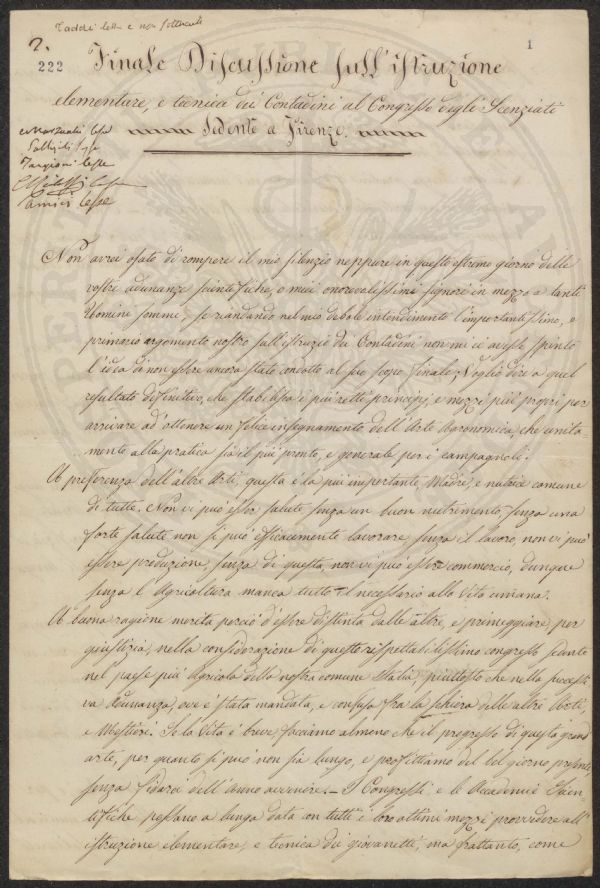 Taddei letta e non sottoscritt
2.
1
222
Finale Discussione sull'istruzione
elementare, e tecnica dei Contadini al Congresso degli Scenziati
Sedente a Firenze.
lesse
lesse
Targioni lesse
lesse
Amici lesse
Non avrei osato di rompere il mio silenzio neppure in questo estremo giorno delle
vostre adunanze scientifiche, o miei onorevolissimi signori in mezzo a tanti
Uomini sommi, se riandando nel mio debole intendimento l'importantissimo, e
primario argomento nostro sull'istruzio dei Contadini non mi ci avesse spinto
l'idea di non essere ancora stato condotto al suo scopo finale; Voglio dire a quel
resultato definitivo, che stabilisca i più retti principj, e mezzi più proprj per
arrivare ad ottenere un felice insegnamento dell'Arte Agronomica, che unita
mente alla pratica sia il più pronto, e generale per i campagnoli.
A preferenza dell'altre Arti, questa è la più importante, Madre, e nutrice comune
di tutte. Non vi può esser salute senza un buon nutrimento, senza una
forte salute non si può efficacemente lavorare, senza il lavoro, non vi può
essere produzione, senza di questa, non vi può essere commercio, dunque
senza l'Agricoltura manca tutto il necessario alla Vita umana.
A buona ragione merita perciò d'essere distinta dalle altre, e primeggiare per
giustizia, nella considerazione di questo rispettabilissimo congresso sedente
nel paese più Agricola della nostra comune Italia, piuttosto che nella successi
va Adunanza, ove è stata mandata, e confusa fra la schiera delle altre Arti,
e Mestieri. Se la Vita è breve, facciamo almeno che il progresso di questa grand'
arte, per quanto si può non sia lungo, e profittiamo del bel giorno presente,
senza fidarci dell'anno avvenire. — I Congressi e le Accademie Scien-
tifiche possano a lunga data con tutti i loro ottimi mezzi provvedere all'
istruzione elementare, e tecnica dei giovanetti, ma frattanto, come